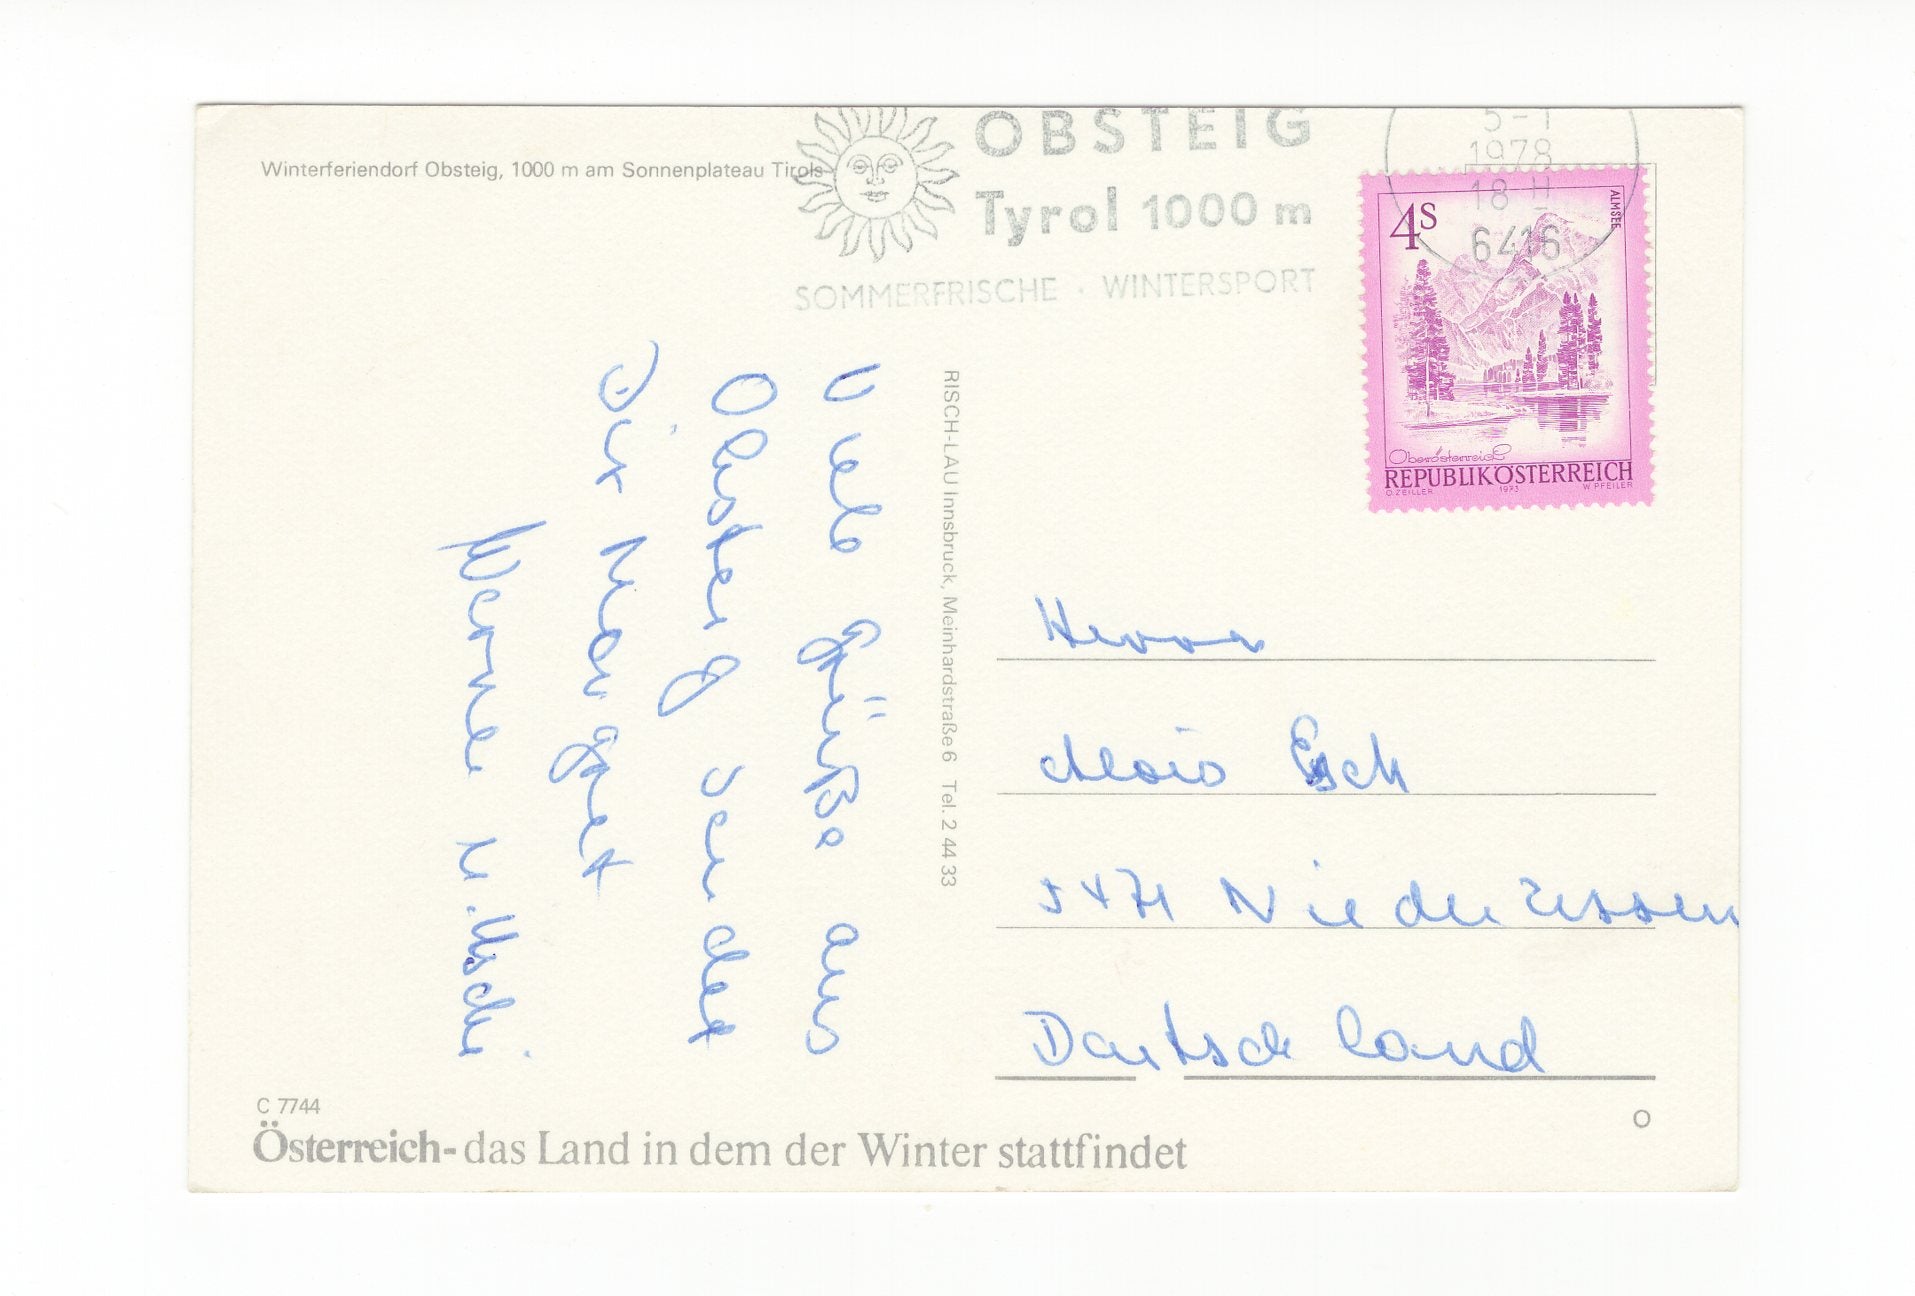 Winterferiendorf Obsteig, 1000 m am Sonnenplateau Tirols
OBSTEIG
Tyrol 1000 m
SOMMERFRISCHE · WINTERSPORT
5-1
1978
18
6416
4S
ALMSEE
Oberösterreich
REPUBLIK ÖSTERREICH
O. ZEILLER 1973 W. PFEILER
Viele Grüße aus
Obsteig sendet
Dir Margret
Werner u. Uschi
RISCH-LAU Innsbruck, Meinhardstraße 6 Tel. 2 44 33
Herrn
Alois Esch
5471 Niederzissen
Deutschland
C 7744
Österreich- das Land in dem der Winter stattfindet
O